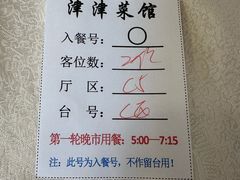 津津菜馆
入餐号：
客位数：2位
厅 区：C5
台 号：
第一轮晚市用餐：5:00—7:15
注：此号为入餐号，不作留台用！